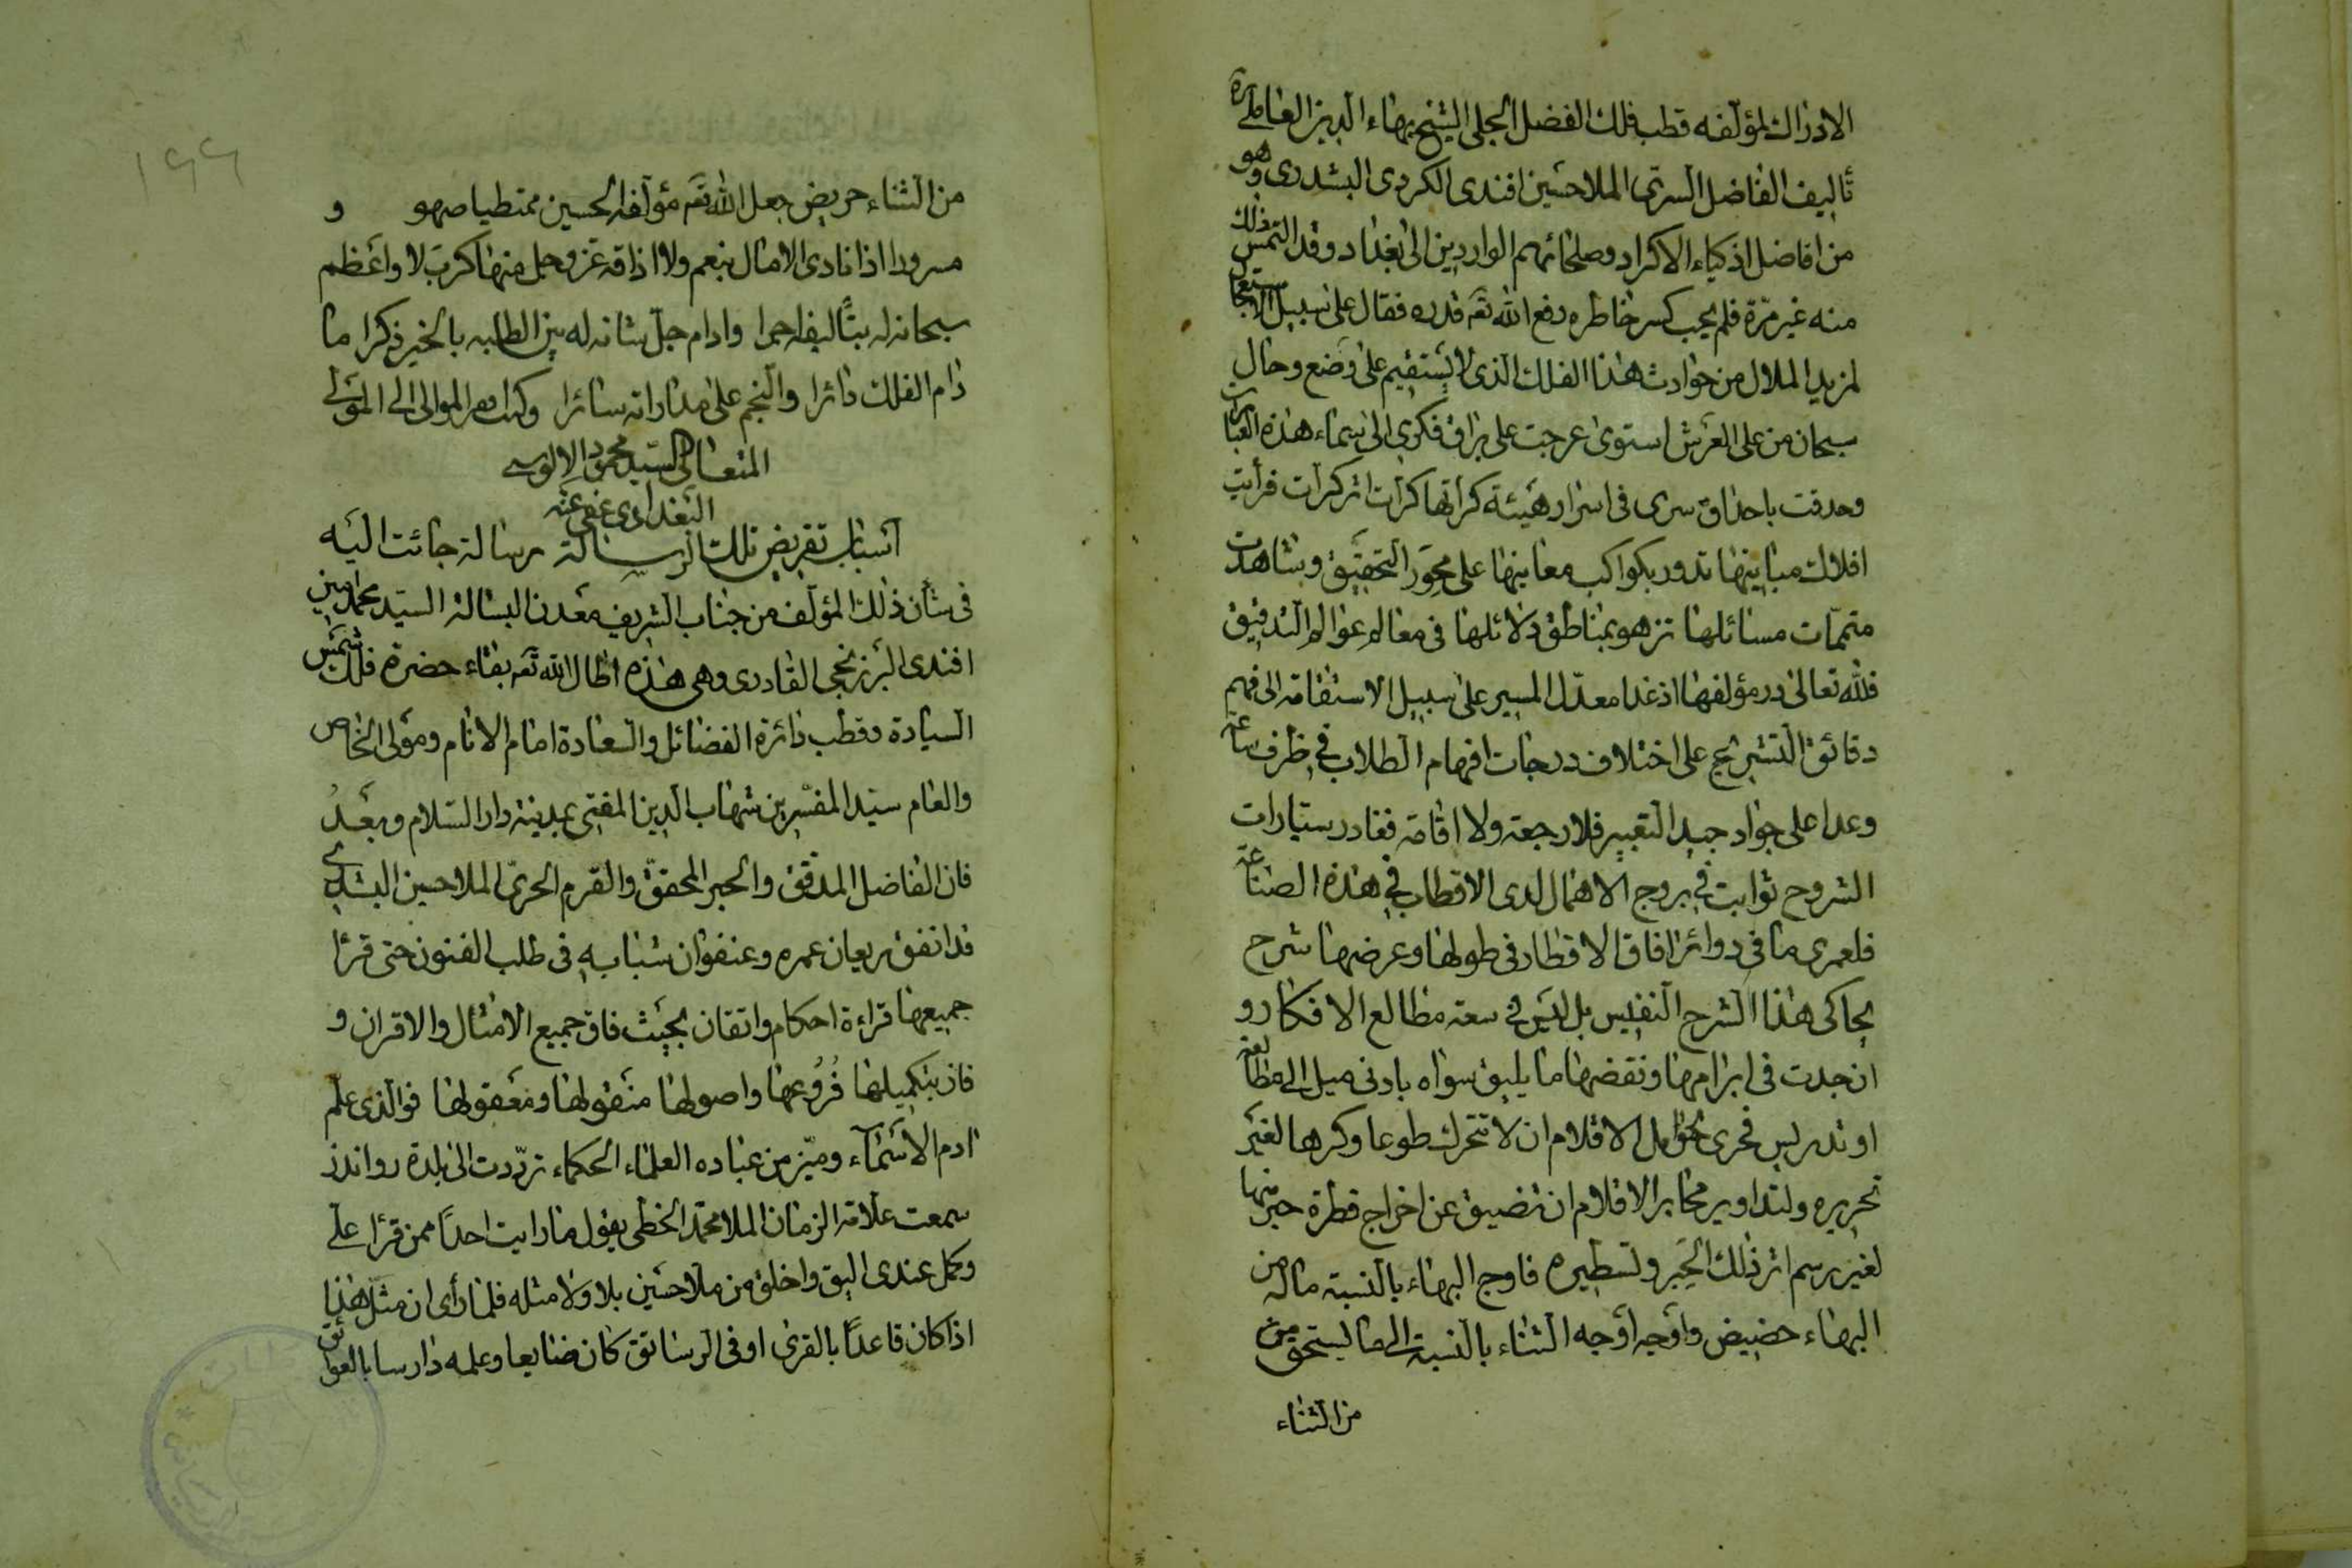 الادراك لمؤلفه قطب فلك الفضل الجلى الشيخ بهاء الدين العاملى
تأليف الفاضل السرى الملا حسين افندى الكردى البشدرى وهو
من افاضل اذكياء الاكراد وصلحائهم الواردين الى بغداد وقد التمس ذلك
منه غير مرة فلم يحب كسر خاطره رفع الله تعه قدره فقال على سبيل الاستعجال
لمزيد الملال من حوادث هذا الفلك الذى لا يستقيم على وضع وحال
سبحان من على العرش استوى عرجت على براق فكرى الى سماء هذه العبارات
وحدقت باحداق سرى فى اسرار هيئة كراتها كرات اثر كرات فرأيت
افلاك مبانيها تدور بكواكب معانيها على محور التحقيق وشاهدت
متممات مسائلها تزهو بمناطق دلائلها فى معالم عوالم التدقيق
فلله تعالى در مؤلفها اذ غدا معدل المسير على سبيل الاستقامة الى فهم
دقائق التشريح على اختلاف درجات افهام الطلاب فى ظرف ساعة
وعدا على جواد جيد التعبير فلا رجعة ولا اقامة فغادر سيارات
الشروح ثوابت فى بروج الاهمال لدى الاقطاب فى هذه الصناعة
فلعمرى ما فى دوائر افاق الاقطار فى طولها وعرضها شرح
يحاكى هذا الشرح النفيس بل ليس فى سعة مطالع الافكار و
ان جدت فى ابرامها ونقضها ما يليق سواه بادنى ميل الى مطالعة
او تدريس فحرى بحوامل الاقلام ان لا تتحرك طوعا وكرها لغير
تحريره ولتداوير محابر الاقلام ان تضيق عن اخراج قطرة حبر منها
لغير رسم اثر ذلك الحبر وتسطيره فاوج البهاء بالنسبة ماله من
البهاء حضيض واوجه اوجه الثناء بالنسبة الى ما يستحق من
من الثناء
١٩٩
من الثناء حريض جعل الله تعه مؤلفه الحسين ممتطيا صهو و
مسرورا اذا نادى الامال بنعم ولا اذاقه عز وجل منها كرب لا واعظم
سبحانه له بتأليفه اجرا وادام جل شانه له بين الطلبه بالخير ذكرا ما
دام الفلك دائرا والنجم على مداراته سائرا وكتب افقر الموالى الى المولى
المتعالى السيد محمود الالوسى
البغدادى عفى عنه
اسباب تقريض تلك الرسالة رسالة جائت اليه
فى شأن ذلك المؤلف من جناب الشريف معدن البسالة السيد محمد امين
افندى البرزنجى القادرى وهى هذه اطال الله تعه بقاء حضرة فلك شمس
السيادة وقطب دائرة الفضائل والسعادة امام الانام ومولى الخاص
والعام سيد المفسرين شهاب الدين المفتى بمدينة دار السلام وبعد
فان الفاضل المدقق والحبر المحقق والقرم الحرى الملا حسين البشدرى
قد انفق ريعان عمره وعنفوان شبابه فى طلب الفنون حتى قرأ
جميعها قراءة احكام واتقان بحيث فاق جميع الامثال والاقران و
فاز بتكميلها فروعها واصولها منقولها ومعقولها فوالذى علم
ادم الاسماء وميز من عباده العلماء الحكماء ترددت الى بلدة رواندز
سمعت علامة الزمان الملا محمد الخطى يقول ما رايت احدا ممن قرأ على
وكمل عندى اليق واخلق من ملا حسين بلا ولا مثله فلما رأى ان مثل هذا
اذا كان قاعدا بالقرى او فى الرساتق كان ضايعا وعلمه دارسا بالعوائق